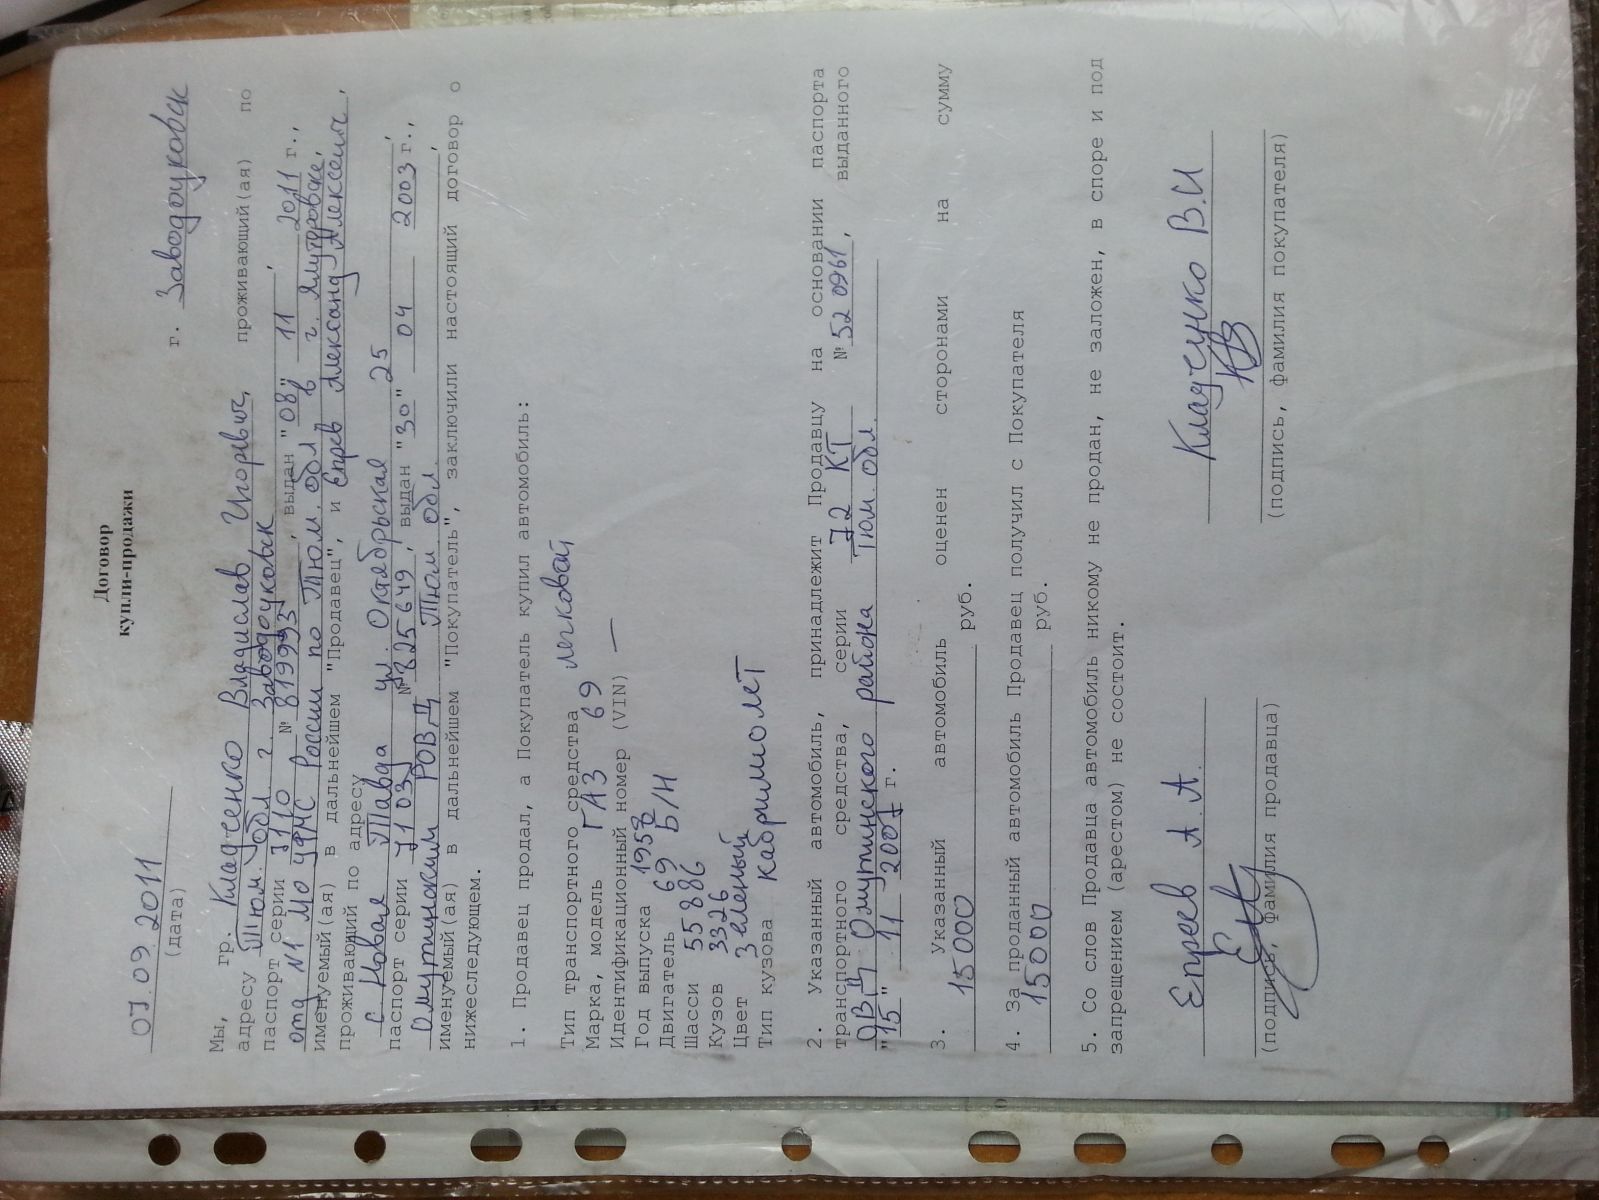 Договор
купли-продажи
07.09.2011 г. Заводоуковск
(дата)
Мы, гр. Владислав Игоревич, проживающий(ая) по
адресу Тюм. обл г. Заводоуковск,
паспорт серии 7110 № 819993, выдан "08" 11 2011 г.,
отд №1 МО УФМС России по Тюм. обл в г. Ялуторовске,
именуемый(ая) в дальнейшем "Продавец", и Епрев Александр Алексеич,
проживающий по адресу
с. Новая Тавда ул. Октябрьская 25,
паспорт серии 7103 № 825649, выдан "30" 04 2003 г.,
Омутинским РОВД Тюм обл.,
именуемый(ая) в дальнейшем "Покупатель", заключили настоящий договор о
нижеследующем.
1. Продавец продал, а Покупатель купил автомобиль:
Тип транспортного средства легковой
Марка, модель ГАЗ 69
Идентификационный номер (VIN) —
Год выпуска 1957
Двигатель 69 Б/Н
Шасси 55886
Кузов 3326
Цвет Зеленый
Тип кузова кабриолет
2. Указанный автомобиль, принадлежит Продавцу на основании паспорта
транспортного средства, серии 72 КТ № 520961, выданного
ОВД Омутинского района Тюм. обл.
"15" 11 2007 г.
3. Указанный автомобиль оценен сторонами на сумму
15000 руб.
4. За проданный автомобиль Продавец получил с Покупателя
15000 руб.
5. Со слов Продавца автомобиль никому не продан, не заложен, в споре и под
запрещением (арестом) не состоит.
Епреев А.А. В.И
(подпись, фамилия продавца) (подпись, фамилия покупателя)